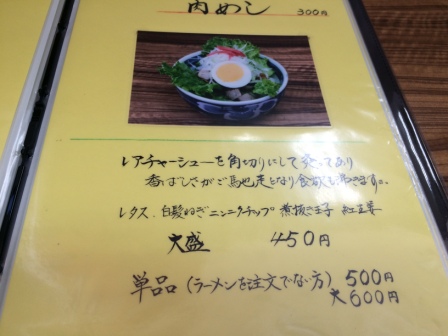 肉めし 300円
レアチャーシューを角切りにして炙ってあり
香ばしさがご馬也走となり食欲も沸きます。
レタス、白髪ねぎニンニクチップ 煮抜き玉子 紅生姜
大盛 450円
単品(ラーメンを注文でない方) 500円
大600円